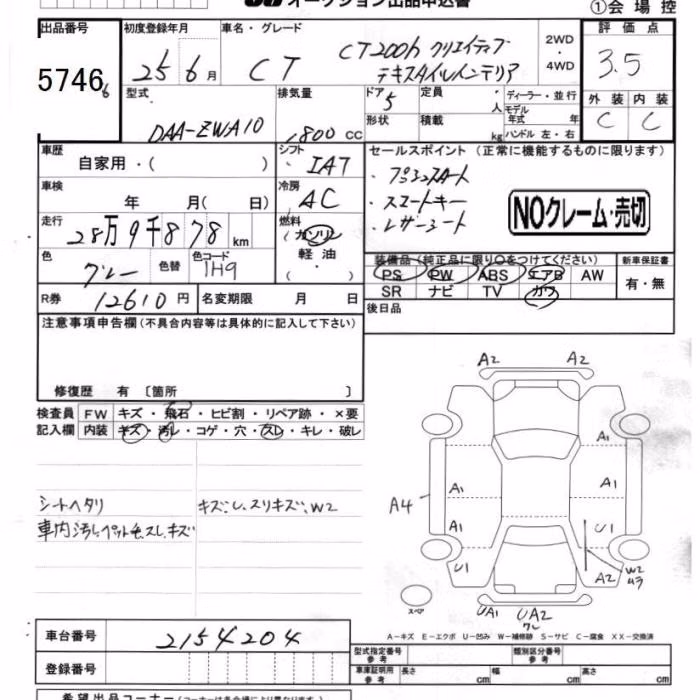 オークション出品申込書
①会場控
出品番号 初度登録年月 車名・グレード 2WD・4WD 評価点
57466 25 6月 CT CT200h クリエイティブ テキスタイルインテリア 3.5
型式 排気量 ドア 定員 ディーラー・並行 外装 内装
DAA-ZWA10 1800 CC 5 人 モデル年式 年 C C
形状 積載 kg ハンドル 左・右
車歴 自家用・( ) シフト IAT セールスポイント (正常に機能するものに限ります)
車検 年 月( 日) 冷房 AC ・プッシュスタート
・スマートキー
・レザーシート
NOクレーム・売切
走行 28万9千878 km 燃料 ガソリン 軽油・
色 グレー 色替 色コード 1H9
装備品(純正品に限り○をつけてください) 新車保証書
PS PW ABS エアB AW 有・無
SR ナビ TV カワ
R券 12610円 名変期限 月 日 後日品
注意事項申告欄(不具合内容等は具体的に記入して下さい)
修復歴 有 〔箇所 〕
検査員記入欄 FW キズ・飛石・ヒビ割・リペア跡・×要
内装 キズ・汚レ・コゲ・穴・スレ・キレ・破レ
シートヘタリ キズ、U、スリキズ、W2
車内汚レ、ペット毛、スレ、キズ
A2 A2
A1
A1 A1
A4
A1 U1
U1 A2 W2 ムラ
スペア
UA1 UA2
A-キズ E-エクボ U-凹み W-補修跡 S-サビ C-腐食 XX-交換済
車台番号 2154204
登録番号
型式指定番号 参考 類別区分番号 参考
車庫証明用 参考 長さ cm 幅 cm 高さ cm
希望出品コーナー